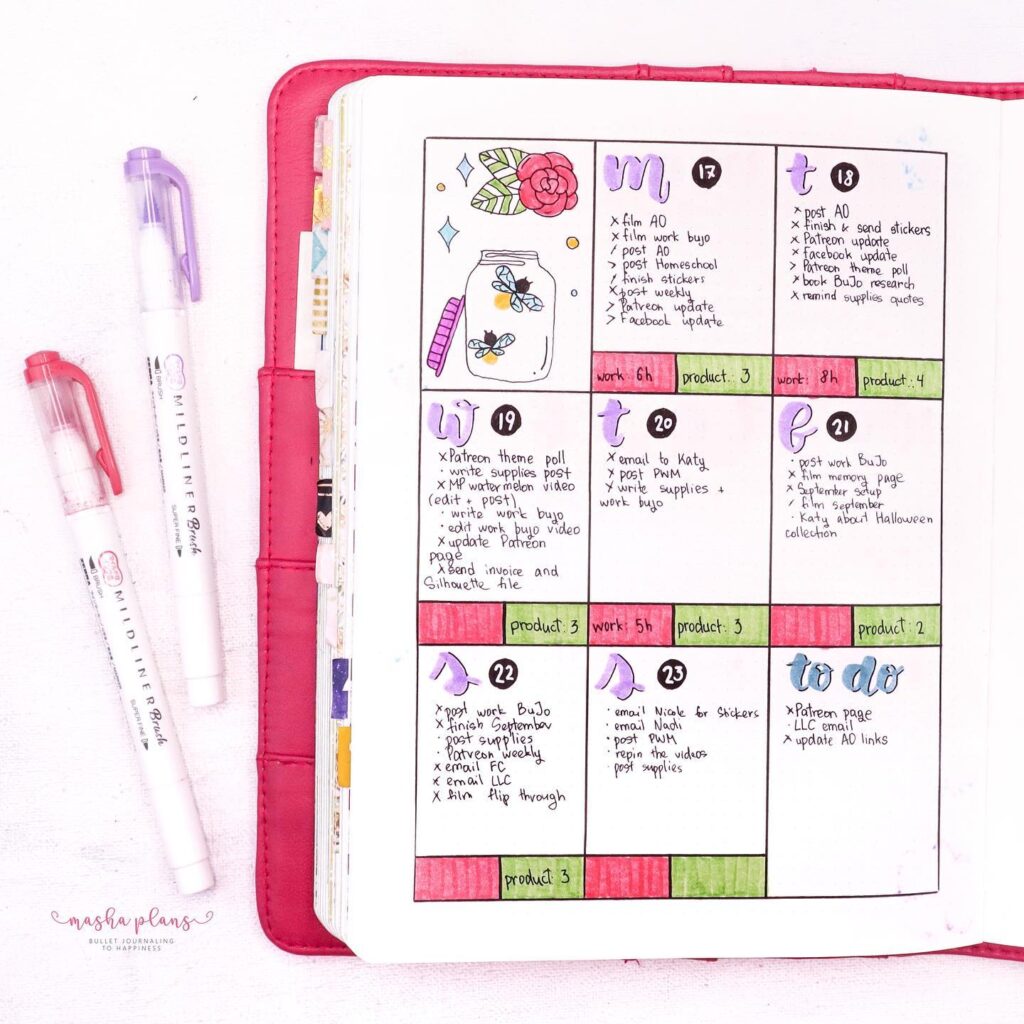 MILDLINER Brush
BRUSH
SUPER FINE
MILDLINER Brush
BRUSH
SUPER FINE
masha plans
BULLET JOURNALING
TO HAPPINESS
m 17
x film AO
x film work bujo
/ post AO
> post Homeschool
/ finish stickers
x post weekly
> Patreon update
> Facebook update
work: 6h product: 3
t 18
x post AO
x finish & send stickers
x Patreon update
x Facebook update
> Patreon theme poll
x book BuJo research
x remind supplies quotes
work: 8h product: 4
w 19
x Patreon theme poll
· write supplies post
x MP watermelon video
(edit + post)
· write work bujo
· edit work bujo video
x update Patreon
page
x send invoice and
Silhouette file
product: 3
t 20
x email to Katy
x post PWM
x write supplies +
work bujo
work: 5h product: 3
f 21
· post work BuJo
x film memory page
x September setup
/ film september
· Katy about Halloween
collection
product: 2
s 22
x post work BuJo
x finish September
· post supplies
· Patreon weekly
x email FC
x email LLC
x film flip through
product: 3
s 23
· email Nicole for Stickers
· email Nadi
· post PWM
· repin the videos
· post supplies
to do
x Patreon page
· LLC email
x update AO links